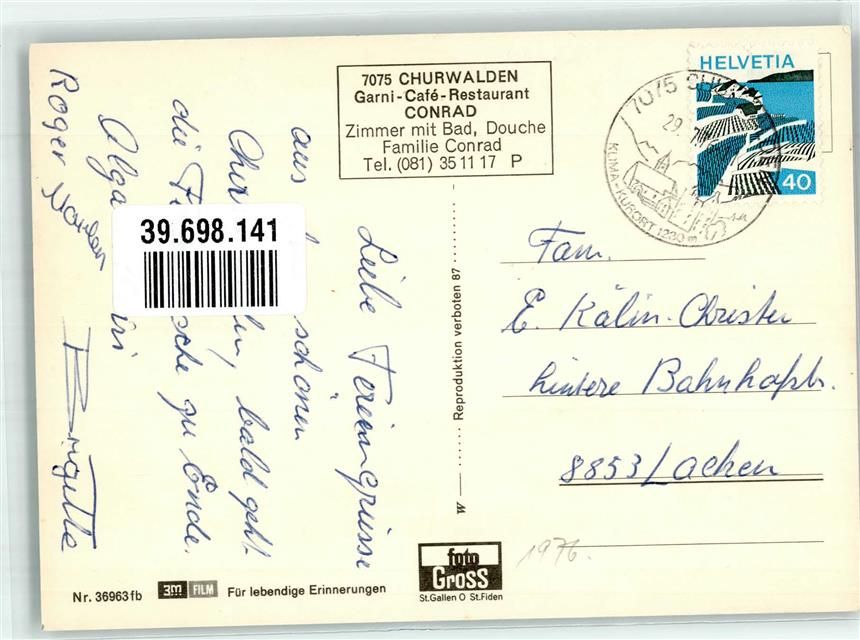 7075 CHURWALDEN
Garni-Café-Restaurant
CONRAD
Zimmer mit Bad, Douche
Familie Conrad
Tel. (081) 35 11 17 P
HELVETIA
40
7075 CHU
29.
KLIMA-KURORT 1230 m
39.698.141
Liebe Feriengrüsse
aus schönen
Chur bald geht
die zu Ende.
Roger
Brigitte
Reproduktion verboten 87
W
Fam.
E. Kälin-Christen
hintere Bahnhofstr.
8853 Lachen
1976.
Nr. 36963fb
3m FILM
Für lebendige Erinnerungen
foto
Gross
St.Gallen O St.Fiden